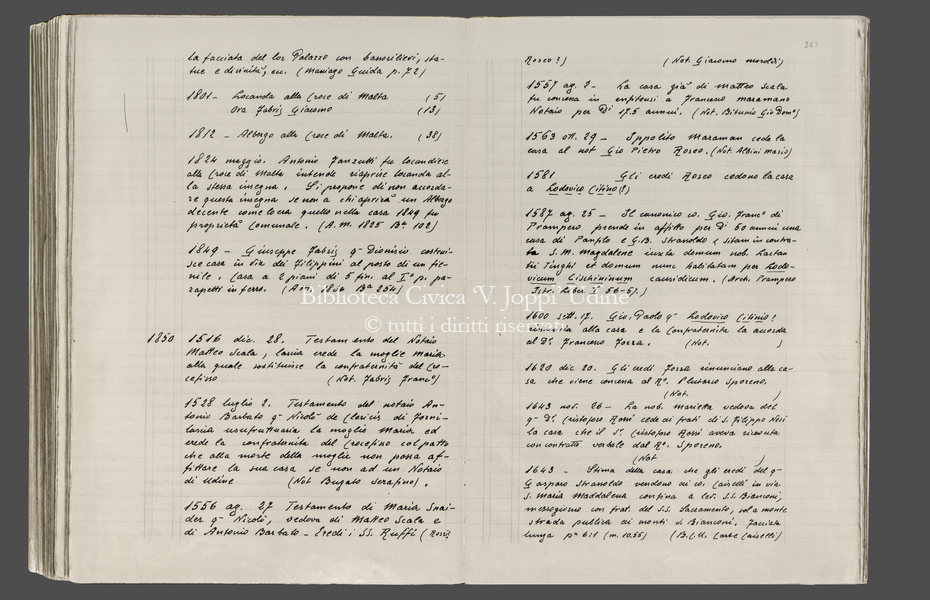 la facciata del lor Palazzo con bassorilievi, sta-
tue e divinità, ecc. (Maniago Guida p. 72)
1801 - Locanda alla Croce di Malta (5)
Ora Fabris Giacomo (13)
1812 - Albergo alla Croce di Malta. (38)
1824 maggio. Antonio Fanzutti fu locandiere
alla Croce di Malta intende riaprire locanda al-
la stessa insegna. Si propone di non accorda-
re questa insegna se non a chi aprirà un Albergo
decente come lo era quello nella casa 1849 fu
proprietà Comunale. (A.M. 1825 Bª 102)
1849 - Giuseppe Fabris q- Dionisio costrui-
sce casa in via dei Filippini al posto di un fie-
nile. Casa a 2 piani di 5 fin. al I° p. pa-
rapetti in ferro. (A.M. 1854 Bª 254)
1850 1516 dic. 28. Testamento del Notaio
Matteo Scala, lascia erede la moglie Maria
alla quale sostituisce la confraternita del Cro-
cefisso (Not. Fabris Franc°)
1528 luglio 2. Testamento del notaio An-
tonio Barbato q- Nicolò de Clericis di Forni-
lascia usufruttuaria la moglie Maria ed
erede la confraternita del Crocefisso col patto
che alla morte della moglie non possa af-
fittare la sua casa se non ad un Notaio
di Udine (Not Bugato Serafino).
1556 ag. 27 Testamento di Maria Snai-
der q- Nicolò, vedova di Matteo Scala e
di Antonio Barbato - Eredi i SS. Ruffi (Rossi
263
Rosco?) (Not. Giacomo
1557 ag. 2 - La casa già di Matteo Scala
fu concessa in enfiteusi a Francesco Maramano
Notaio per D. 17.5 annui. (Not. Bitunio Gio Dom°)
1563 ott. 29 - Ippolito Maraman cede la
casa al not Gio Pietro Rosco. (Not. Albini Mario)
1581 Gli eredi Rosco cedono la casa
a Lodovico Citino(?)
1587 ag. 25 - Il canonico co. Gio. Franc° di
Prampero prende in affitto per D. 50 annui una
casa di Panfilo e G.B. Strasoldo "sitam in contra-
ta S.M. Magdalene iuxta domum nob. Lactan
tii Tinghi et domum nunc habitatam per Lodo-
vicum Cischininum causidicum. (Arch. Prampero
Istr. Lib. I 56-57.)
Biblioteca Civica 'V. Joppi' Udine
© tutti i diritti riservati
1600 sett. 17. Gio. Paolo q- Lodovico Citinio?
rinuncia alla casa e la Confraternita la accorda
al D. Francesco Forza. (Not. )
1620 dic 20. Gli eredi Forza rinunciano alla ca-
sa che viene concessa al R°. Plutarco Sporeno.
(Not. )
1643 nov. 26 - La nob. Marietta vedova del
q- D. Cristoforo Rossi cede ai frati di S. Filippo Neri
la casa che il S. Cristoforo Rossi aveva ricevuta
con contratto verbale dal R°. Sporeno.
(Not )
1643 - Stima della casa che gli eredi del q-
Gasparo Strasoldo vendono ai co: Caiselli in via
S. Maria Maddalena confina a lev. SS. Bianconi,
mezzogiorno con frat. del SS. Sacramento, sol a monte
strada publica di monti S. Bianconi. Facciata
lunga p.ª 611 (m. 10.55) (B.C.U. Carte Caiselli)